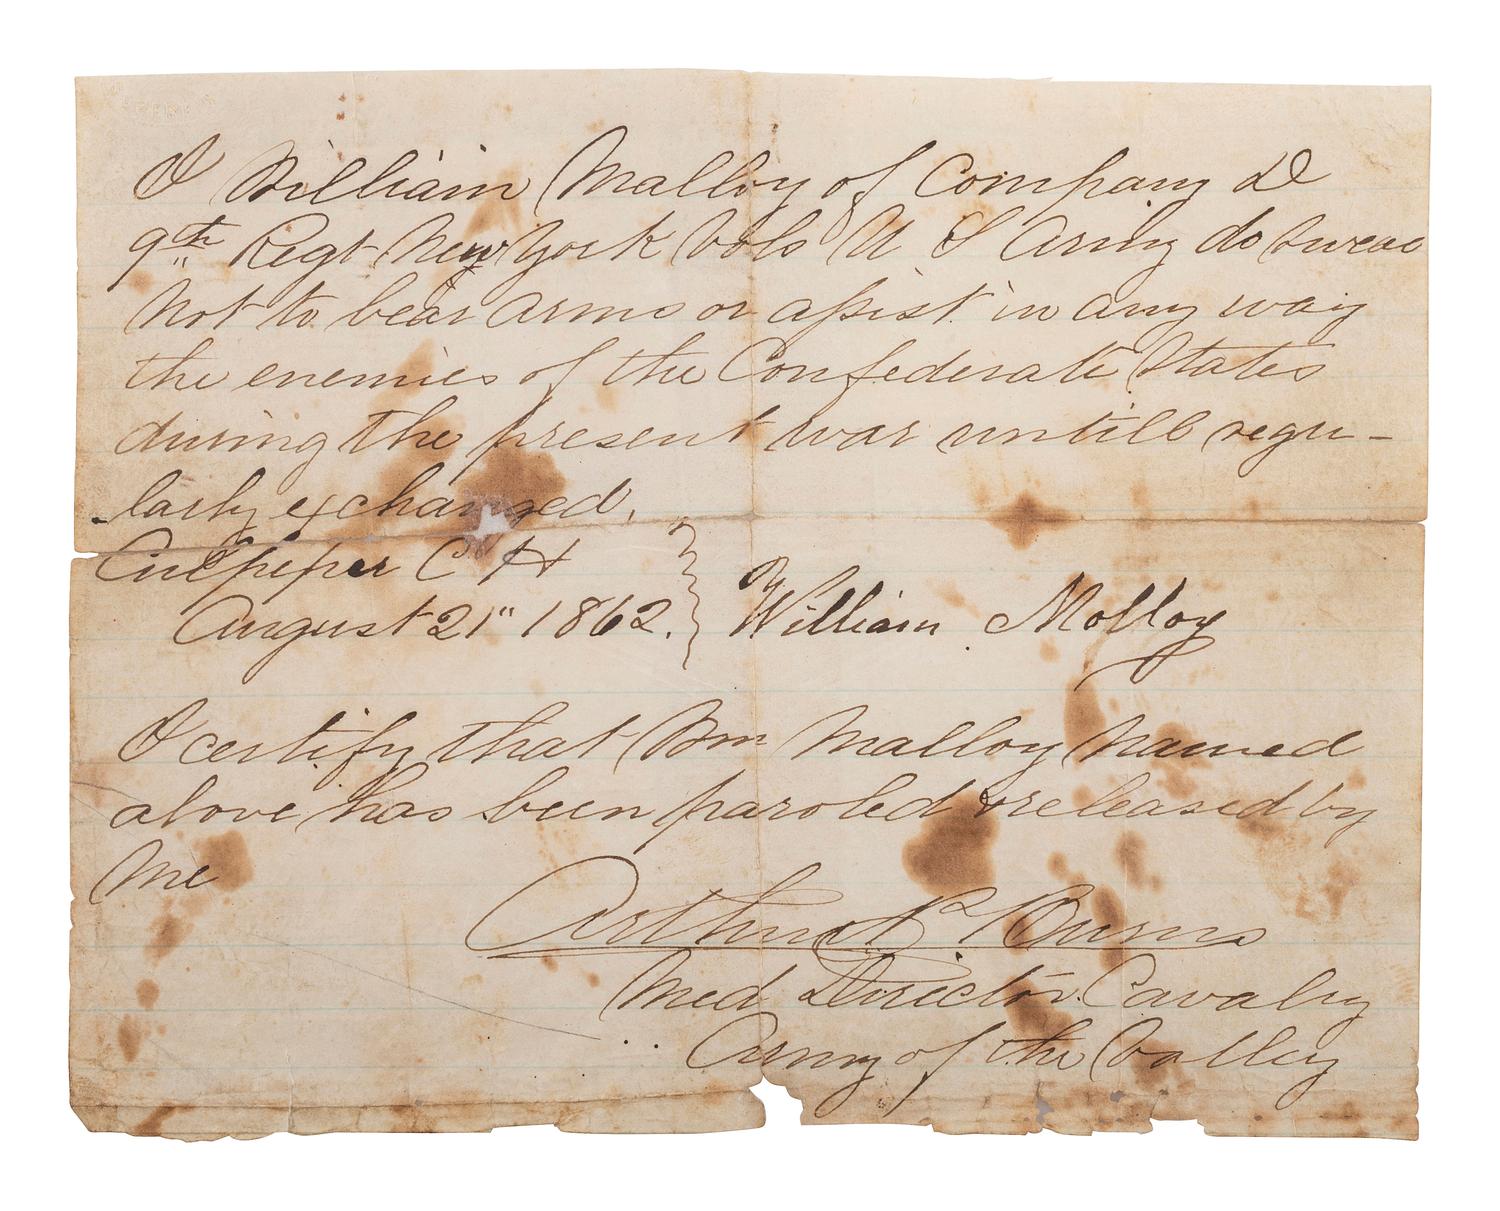 I William Malloy of Company D
9th Regt New York Vols U S Army do swear
not to bear arms or assist in any way
the enemies of the Confederate States
during the present war untill regu-
larly exchanged.
Culpeper C H
August 21" 1862. William Molloy
I certify that Wm Malloy named
above has been paroled & released by
me
Arthur R Burns
Med Director Cavalry
Army of the Valley